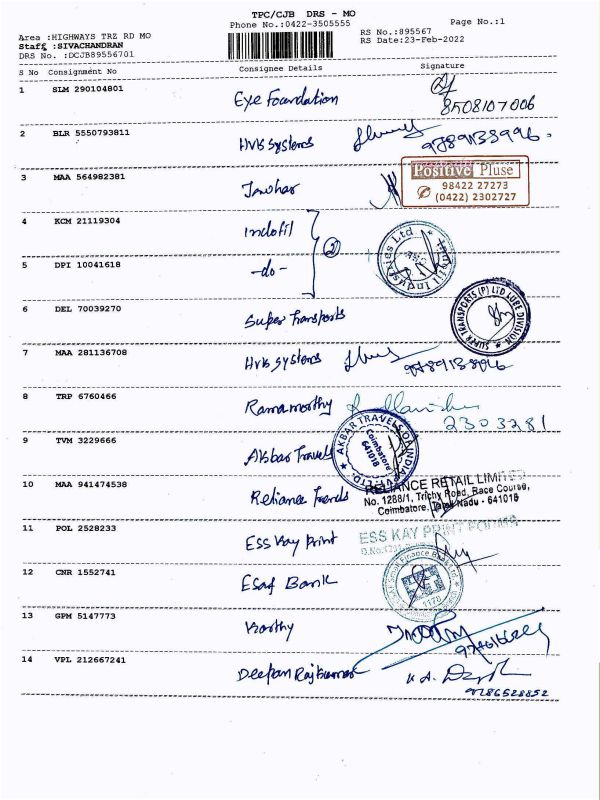 TPC/CJB DRS - MO
Phone No.:0422-3505555
Page No.:1
Area :HIGHWAYS TRZ RD MO
RS No.:895567
Staff :SIVACHANDRAN
RS Date:23-Feb-2022
DRS No. :DCJB89556701
S No Consignment No Consignee Details Signature
1 SLM 290104801 Eye Foundation
8508107006
2 BLR 5550793811 HVB Systems
9789138996.
3 MAA 564982381 Jawhar
Positive Pluse
98422 27273
(0422) 2302727
4 KCM 21119304 Indofil
5 DPI 10041618 -do- 2
Indofil Industries Ltd
6 DEL 70039270 Super Transports
SUPER TRANSPORTS (P) LTD LUBE DIVISION
7 MAA 281136708 HVB Systems
8 TRP 6760466 Ramamorthy
2303281
9 TVM 3229666 Akbar Travels
AKBAR TRAVELS OF INDIA
Coimbatore
641018
10 MAA 941474538 Reliance Trends
RELIANCE RETAIL LIMITED
No. 1288/1, Trichy Road, Race Course,
Coimbatore, Tamil Nadu - 641018
11 POL 2528233 ESS Kay Print
ESS KAY PRINT
12 CNR 1552741 Esaf Bank
Small Finance Bank Ltd
1178
13 GPM 5147773 Karthy
14 VPL 212667241 Deepan Rajkumar
9786528852